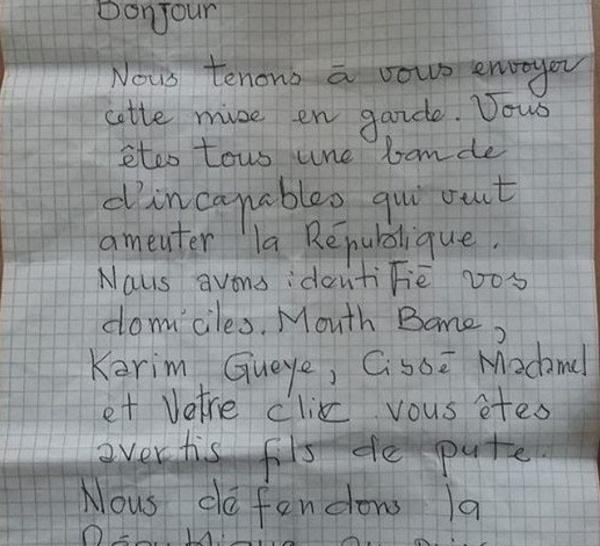 Bonjour
Nous tenons à vous envoyer
cette mise en garde. Vous
êtes tous une bande
d'incapables qui veut
ameuter la République.
Nous avons identifié vos
domiciles. Mouth Bane,
Karim Gueye, Cissé Madamel
et Votre clic vous êtes
avertis fils de pute.
Nous défendons la
République